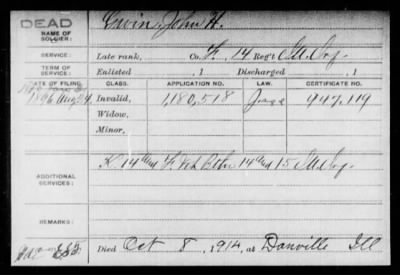 DEAD
NAME OF SOLDIER: Ervin, John H.
SERVICE: Late rank, Co. F, 14 Reg't Ill. Inf.
TERM OF SERVICE: Enlisted , 1 Discharged , 1
DATE OF FILING. CLASS. APPLICATION NO. LAW. CERTIFICATE NO.
1896 Aug 24 Invalid, 1,180,518 947,119
Widow,
Minor,
ADDITIONAL SERVICES: K. 14 and F. Vet Batn 14 and 15 Ill. Inf.
REMARKS:
Died Oct 8, 1914, at Danville Ill